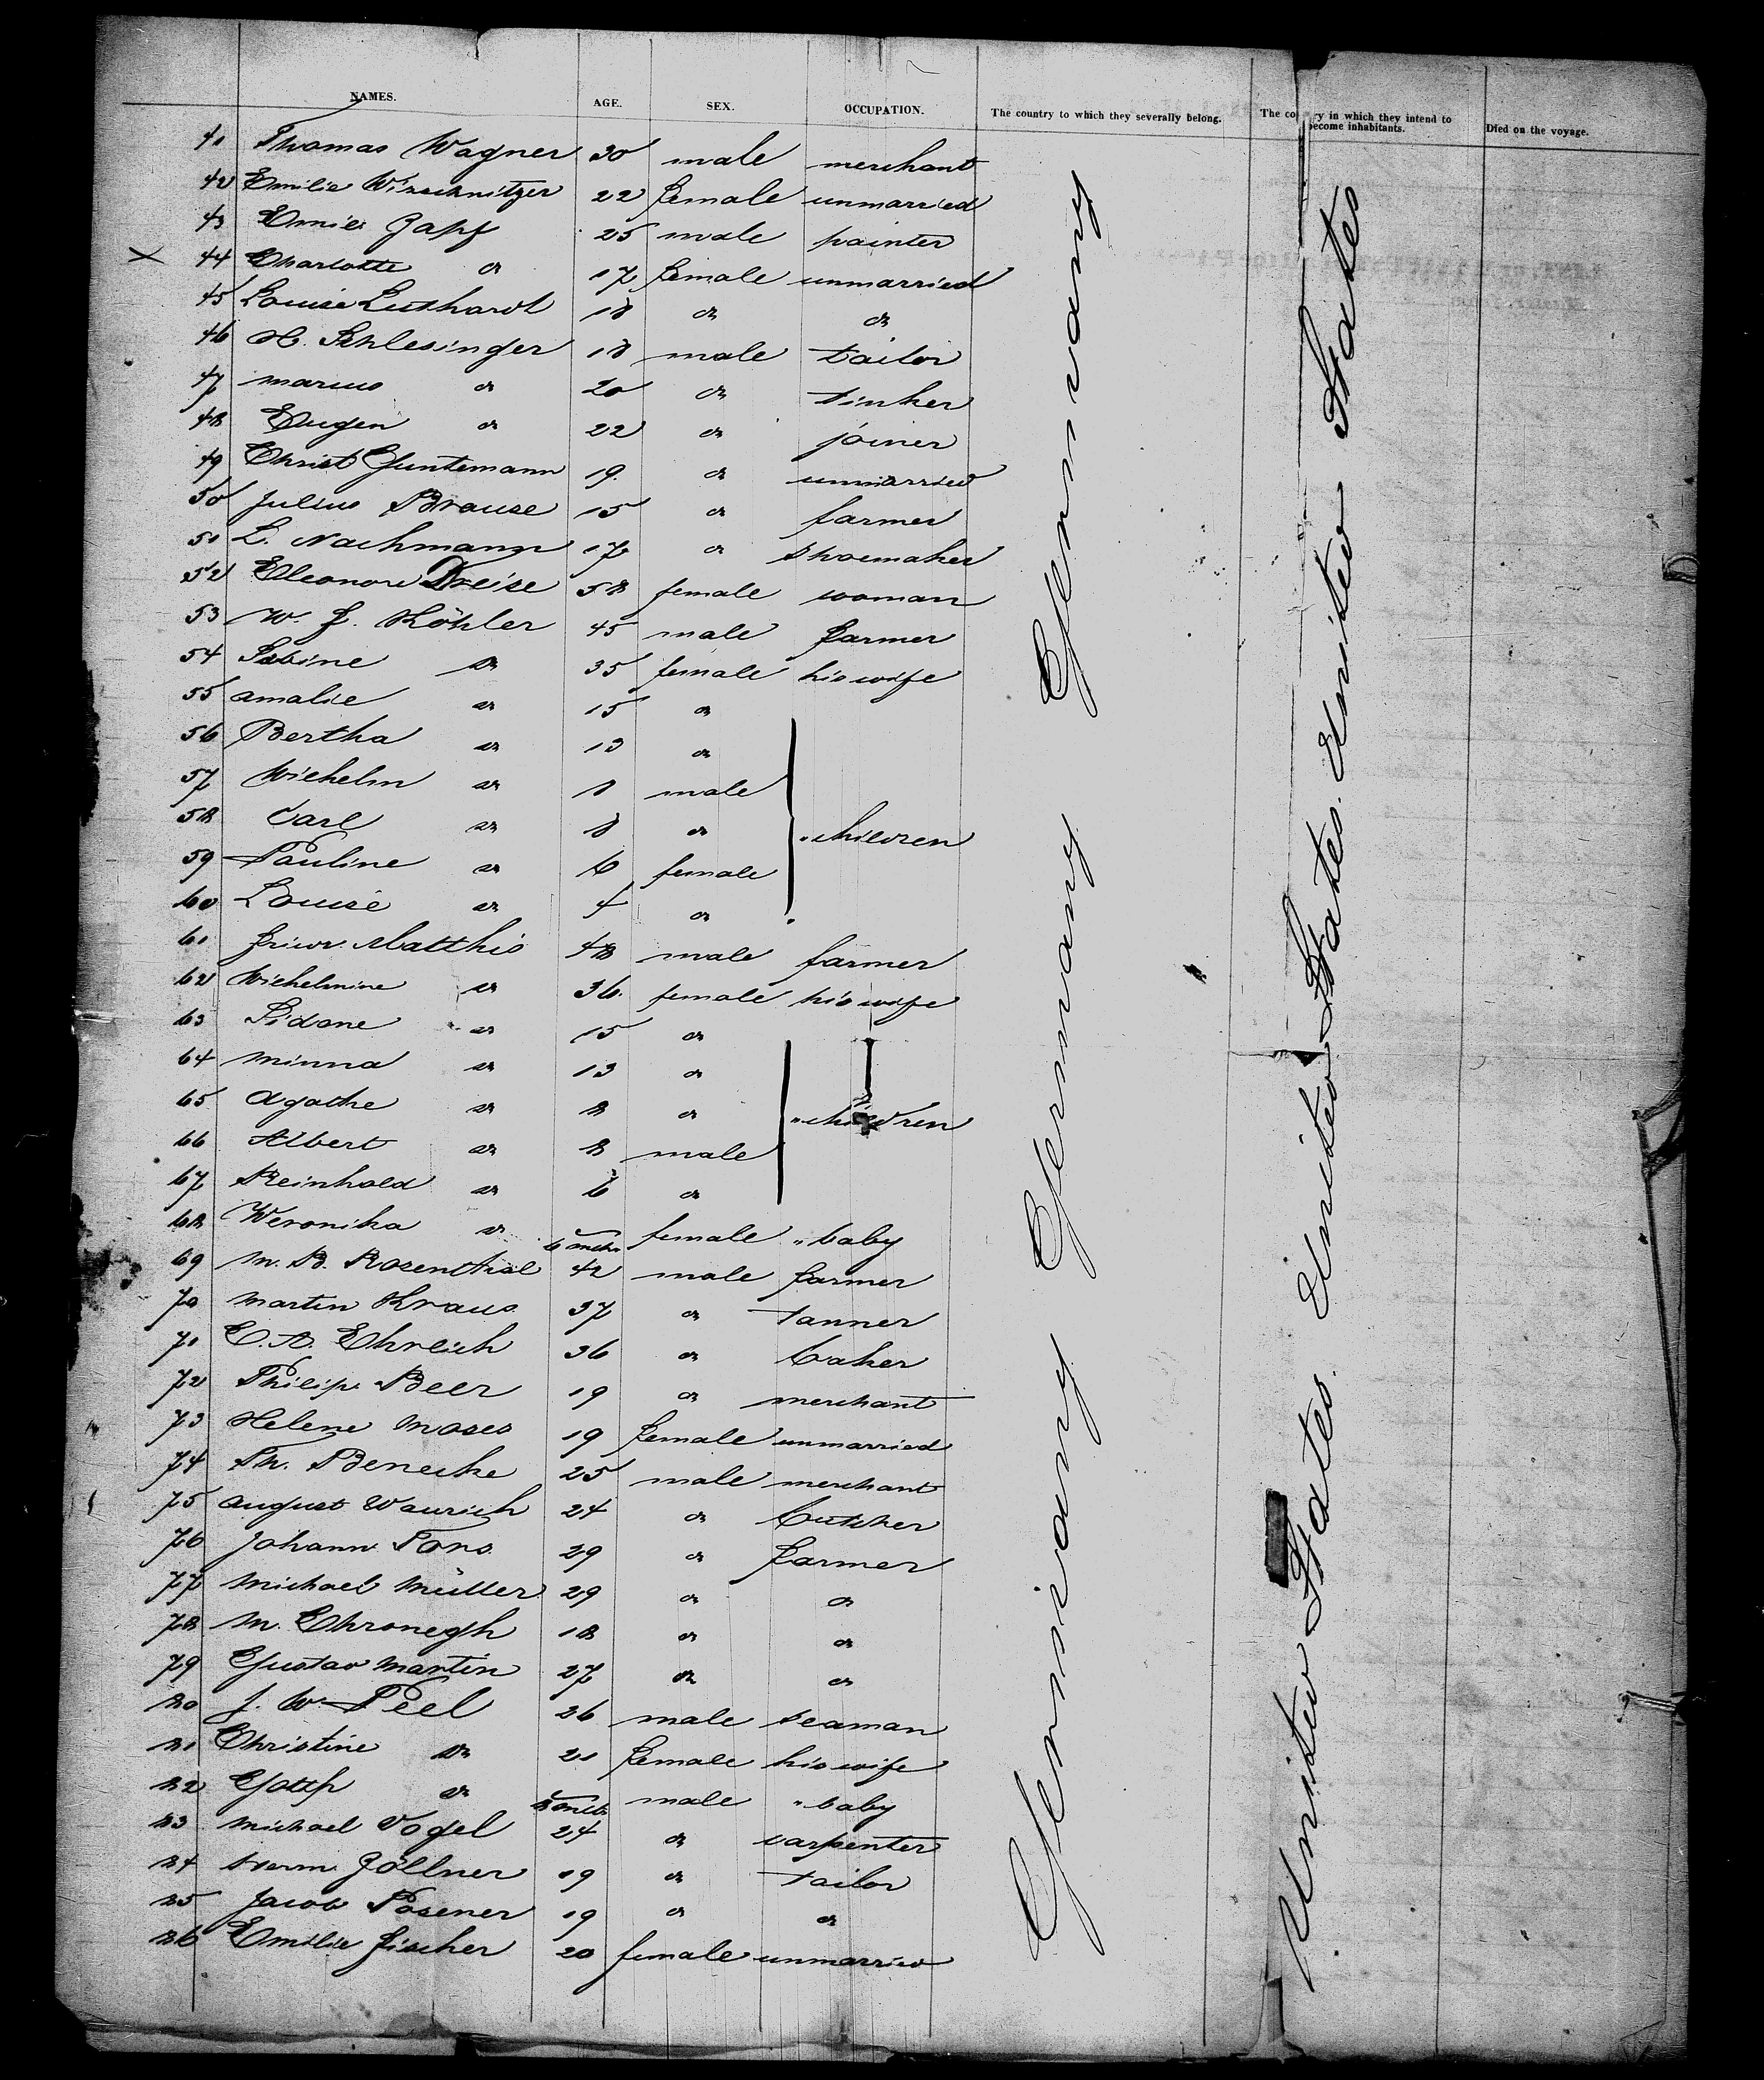 NAMES. AGE. SEX. OCCUPATION. The country to which they severally belong. The co ry in which they intend to become inhabitants. Died on the voyage.
41 Thomas Wagner 30 male merchant
42 Emilie 22 female unmarried
43 Zapf 25 male painter
44 Charlotte do 17 female unmarried
45 Louise Luthardt 18 do do
46 H. Schlesinger 18 male tailor
47 Marcus do 20 do tinker
48 Eugen do 22 do joiner
49 Christ Guntemann 19. do unmarried
50 Julius Brause 15 do farmer
51 L. Nachmann 17 do shoemaker
52 Eleonore Dreise 58 female woman
53 W. F. Köhler 45 male farmer
54 Sabine do 35 female his wife
55 Amalie do 15 do
56 Bertha do 13 do
57 Wilhelm do 8 male
58 Carl do 8 do " children
59 Pauline do 6 female
60 Louise do 4 do
61 Friedr. Matthis 48 male farmer
62 Wilhelmine do 36. female his wife
63 Sidone do 15 do
64 Minna do 13 do
65 Agathe do 8 do " children
66 Albert do 8 male
67 Reinhold do 6 do
68 Weronika do 6 mths female " baby
69 M. B. Rosenthal 42 male farmer
70 Martin Kraus 37 do tanner
71 C. A. Ehrlich 36 do baker
72 Philip Beer 19 do merchant
73 Helene Moses 19 female unmarried
74 Th. Benecke 25 male merchant
75 August Waurich 24 do butcher
76 Johann 29 do farmer
77 Michael Müller 29 do do
78 M. Chronegh 18 do do
79 Gustav Martin 27 do do
80 J. W. Peel 26 male seaman
81 Christine do 21 female his wife
82 do 8 mths male " baby
83 Michael Vogel 24 do carpenter
84 Herm. Zöllner 19 do tailor
85 Jacob Posener 19 do do
86 Emilie Fischer 20 female unmarried
Germany Germany Germany
United States. United States. United States